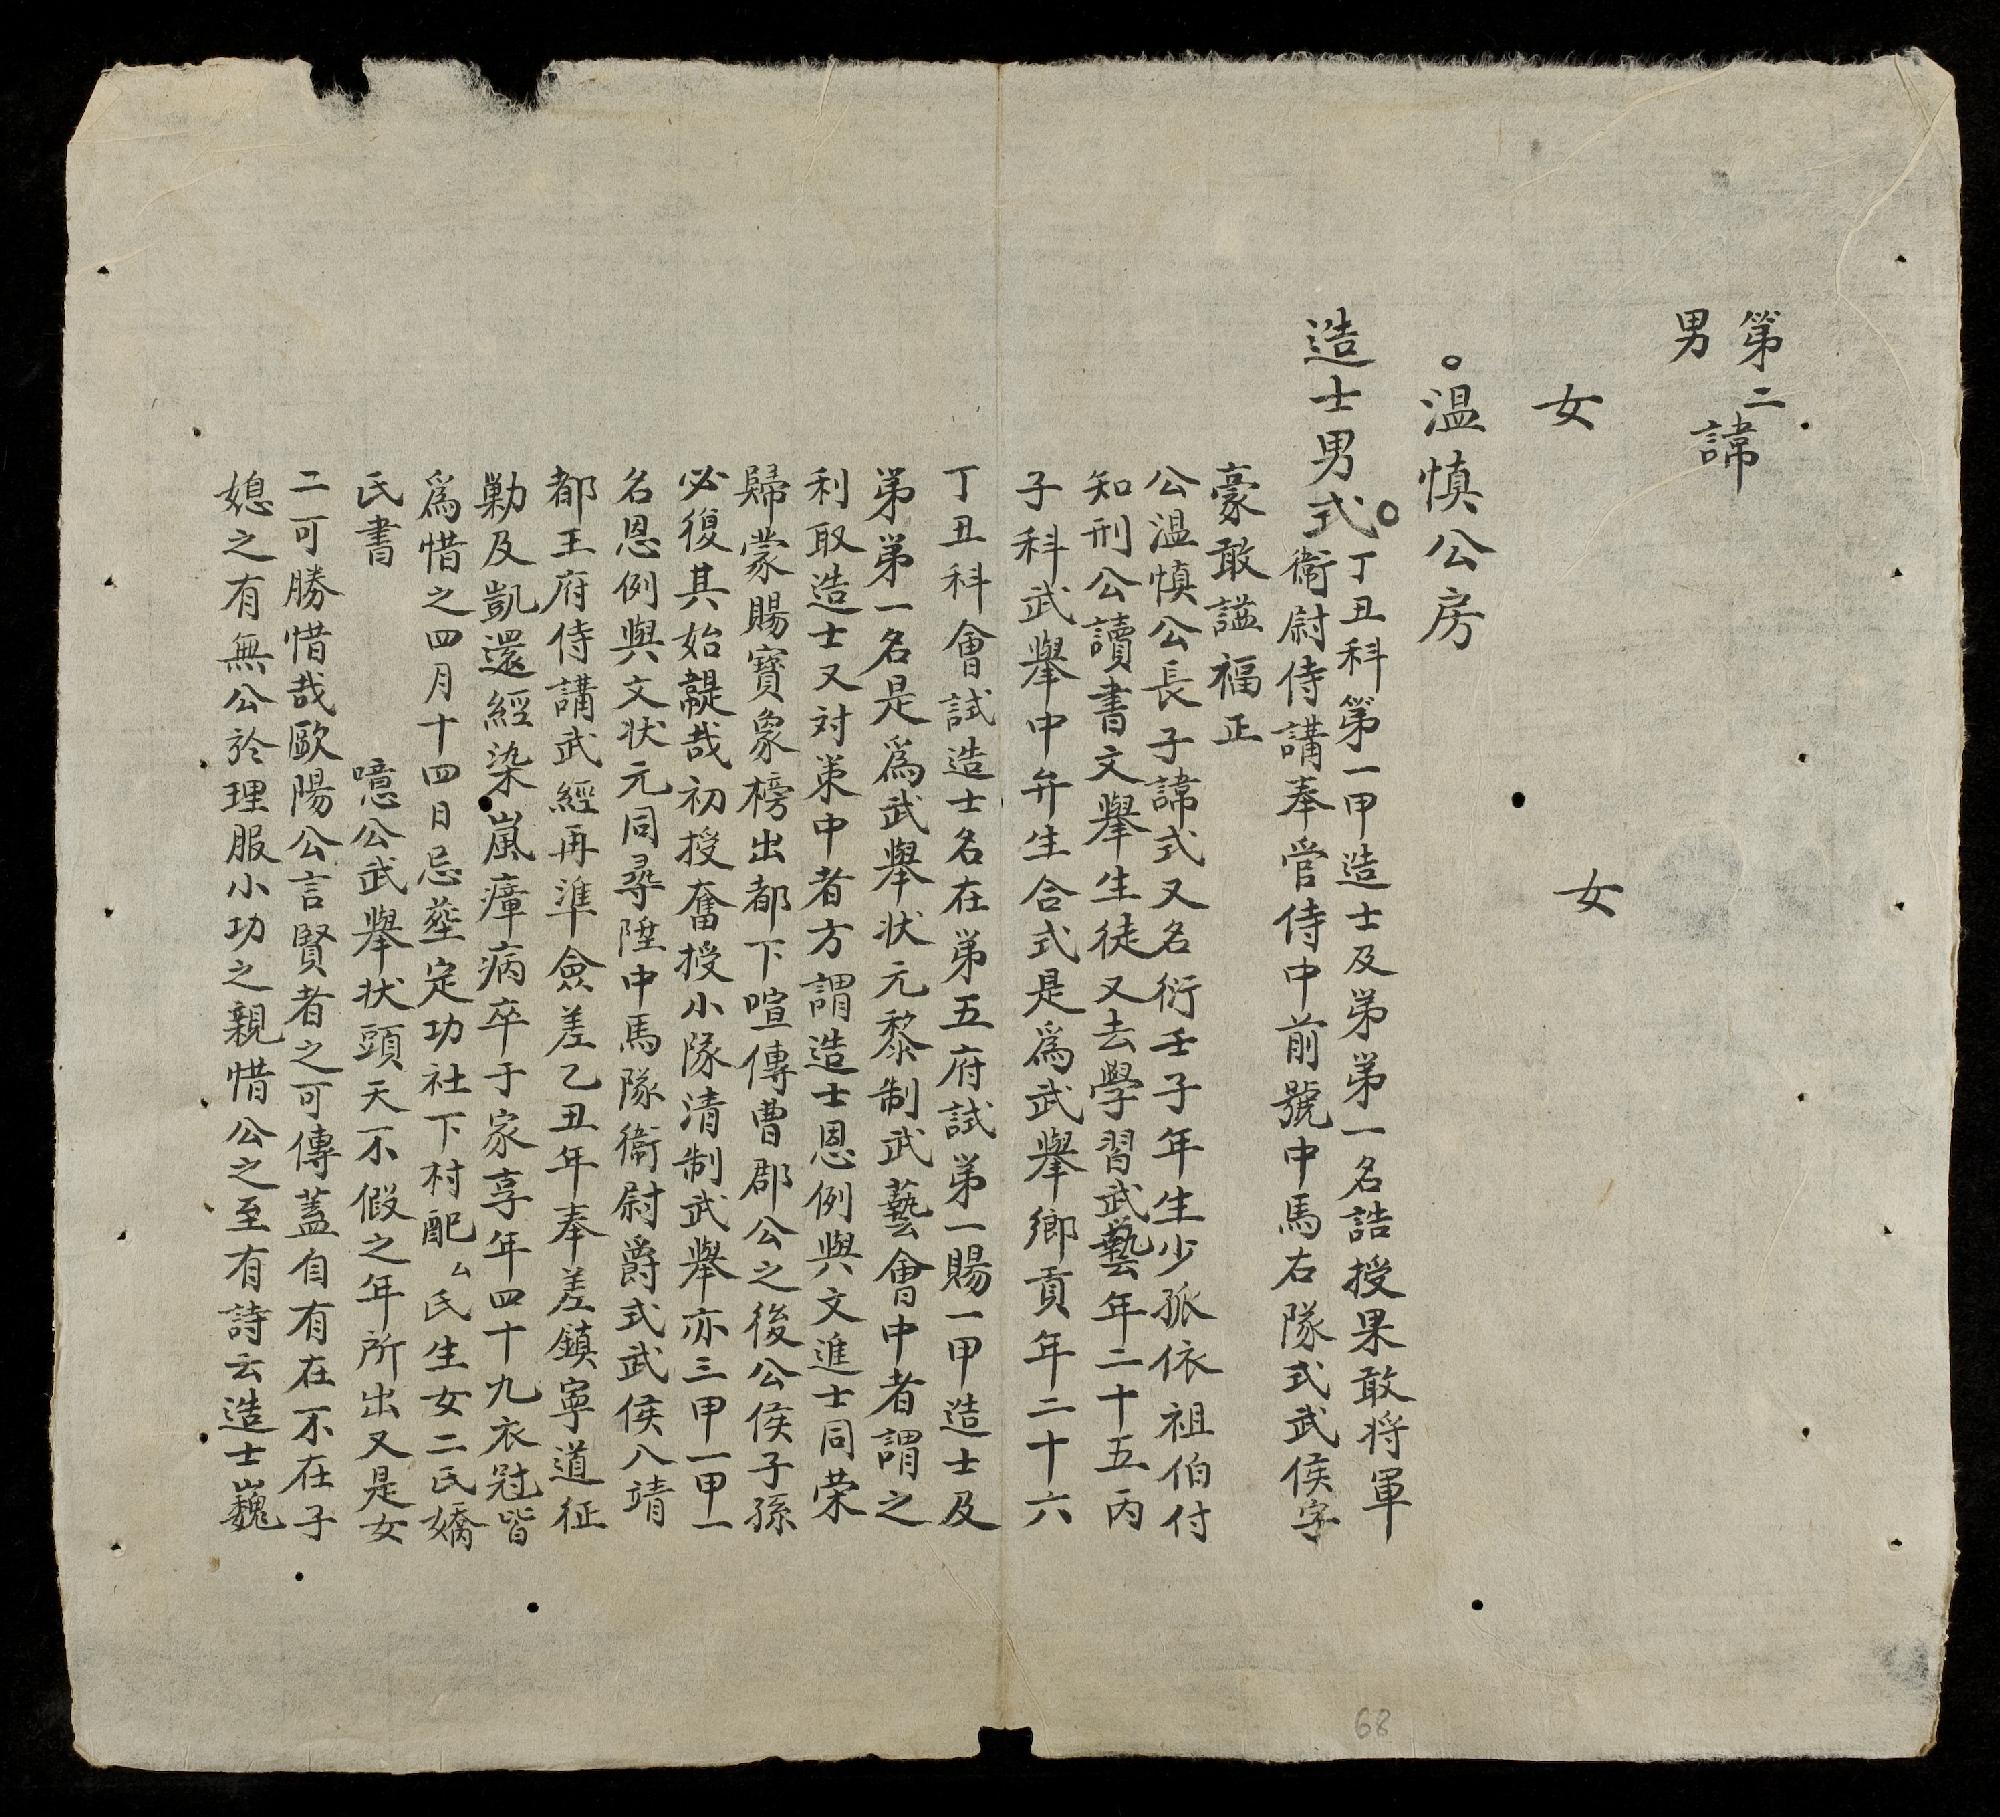 第二
男諱
女 女
○温慎公房
造士男式○丁丑科第一甲造士及弟弟一名誥授果敢将軍
衞尉侍講奉官侍中前號中馬右隊式武侯字
豪敢謚福正
公温慎公長子諱式又名衍壬子年生少孤依祖伯付
知刑公讀書文舉生徒又去學習武藝年二十五丙
子科武舉中弁生合式是為武舉鄉貢年二十六
丁丑科會試造士名在弟五府試弟一賜一甲造士及
弟弟一名是為武舉状元黎制武藝會中者謂之
利取造士又対策中者方謂造士恩例與文進士同荣
歸蒙賜寳象榜出都下喧傳曹郡公之後公侯子孫
必復其始韙哉初授奮授小隊清制武舉亦三甲一甲一
名恩例與文状元同尋陞中馬隊衞尉爵式武侯八靖
都王府侍講武經再準僉差乙丑年奉差鎮寧道征
勦及凱還經染嵐瘴病卒于家享年四十九衣冠皆
為惜之四月十四日忌塟定功社下村配厶氏生女二氏嬌
氏書 噫公武舉状頭天不假之年所出又是女
二可勝惜哉歐陽公言賢者之可傳蓋自有在不在子
媳之有無公於理服小功之親惜公之至有詩云造士巍
68